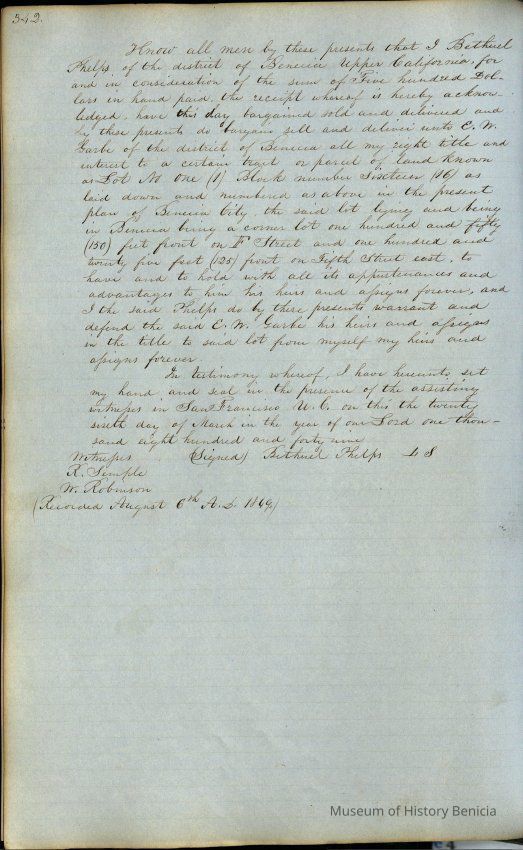 342.
Know all men by these presents that I Bethuel
Phelps of the district of Benicia Upper California, for
and in consideration of the sum of Five hundred Dol-
lars in hand paid, the receipt whereof is hereby acknow-
ledged, have this day bargained sold and delivered and
by these presents do bargain sell and deliver unto E. W.
Garbe of the district of Benicia all my right title and
interest to a certain tract or parcel of land known
as Lot No One (1) Block number Sixteen (16) as
laid down and numbered as above in the present
plan of Benicia City, the said lot lying and being
in Benicia being a corner lot one hundred and fifty
(150) feet front on Street and one hundred and
twenty five feet (125) front on Fifth Street east, to
have and to hold with all its appurtenances and
advantages to him his heirs and assigns forever, and
I the said Phelps do by these presents warrant and
defend the said E. W. Garbe his heirs and assigns
in the title to said lot from myself my heirs and
assigns forever.
In testimony whereof, I have hereunto set
my hand and seal in the presence of the assisting
witnesses in San Francisco U. C. on this the twenty
sixth day of March in the year of our Lord one thou-
sand eight hundred and forty nine
Witnesses (Signed) Bethuel Phelps L S
R. Semple
W. Robinson
(Recorded August 6th A. D. 1849)
Museum of History Benicia